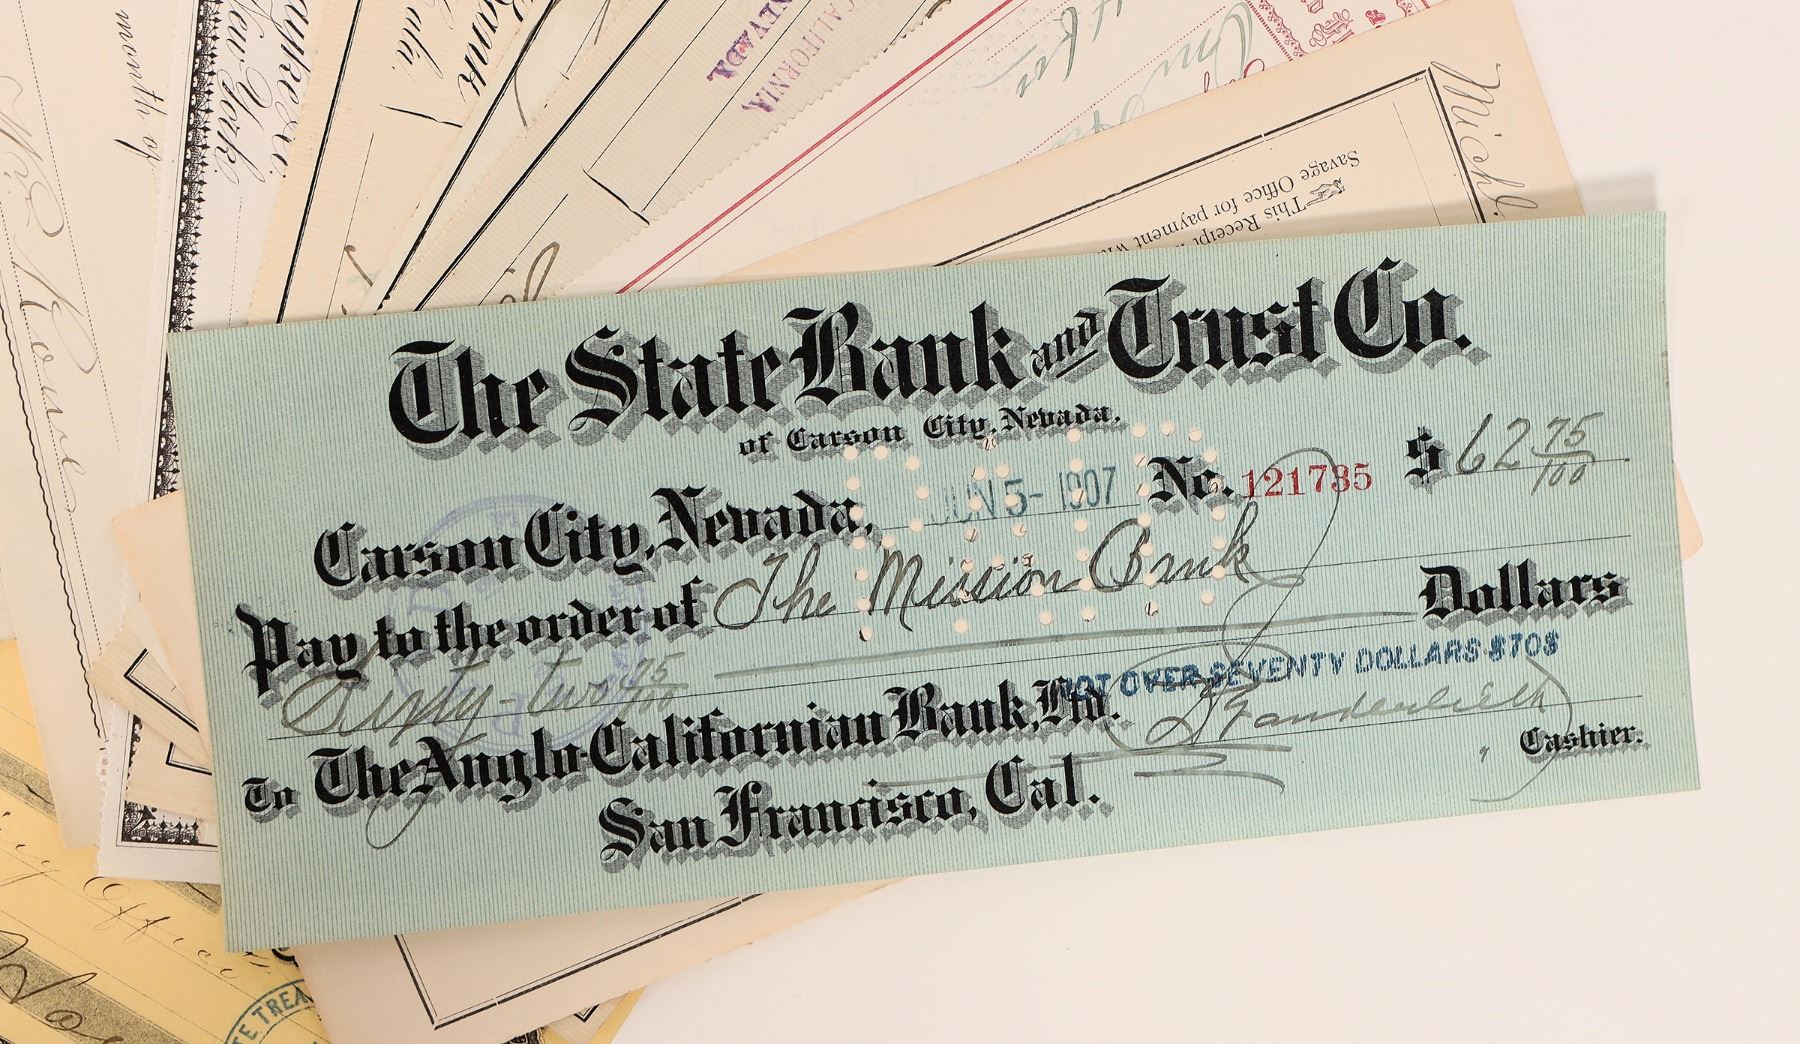 month of
New York
Bank
Cala.
NEVADA
CALIFORNIA
This Receipt
Savage Office for payment
The State Bank and Trust Co.
of Carson City, Nevada.
Carson City, Nevada, JUN 5- 1907 No. 121735 $ 62 75/100
Pay to the order of The Mission Bank
Sixty-two 75/100 Dollars
NOT OVER SEVENTY DOLLARS $70$
To The Anglo-Californian Bank, Ltd.
San Francisco, Cal.
Cashier.
Office